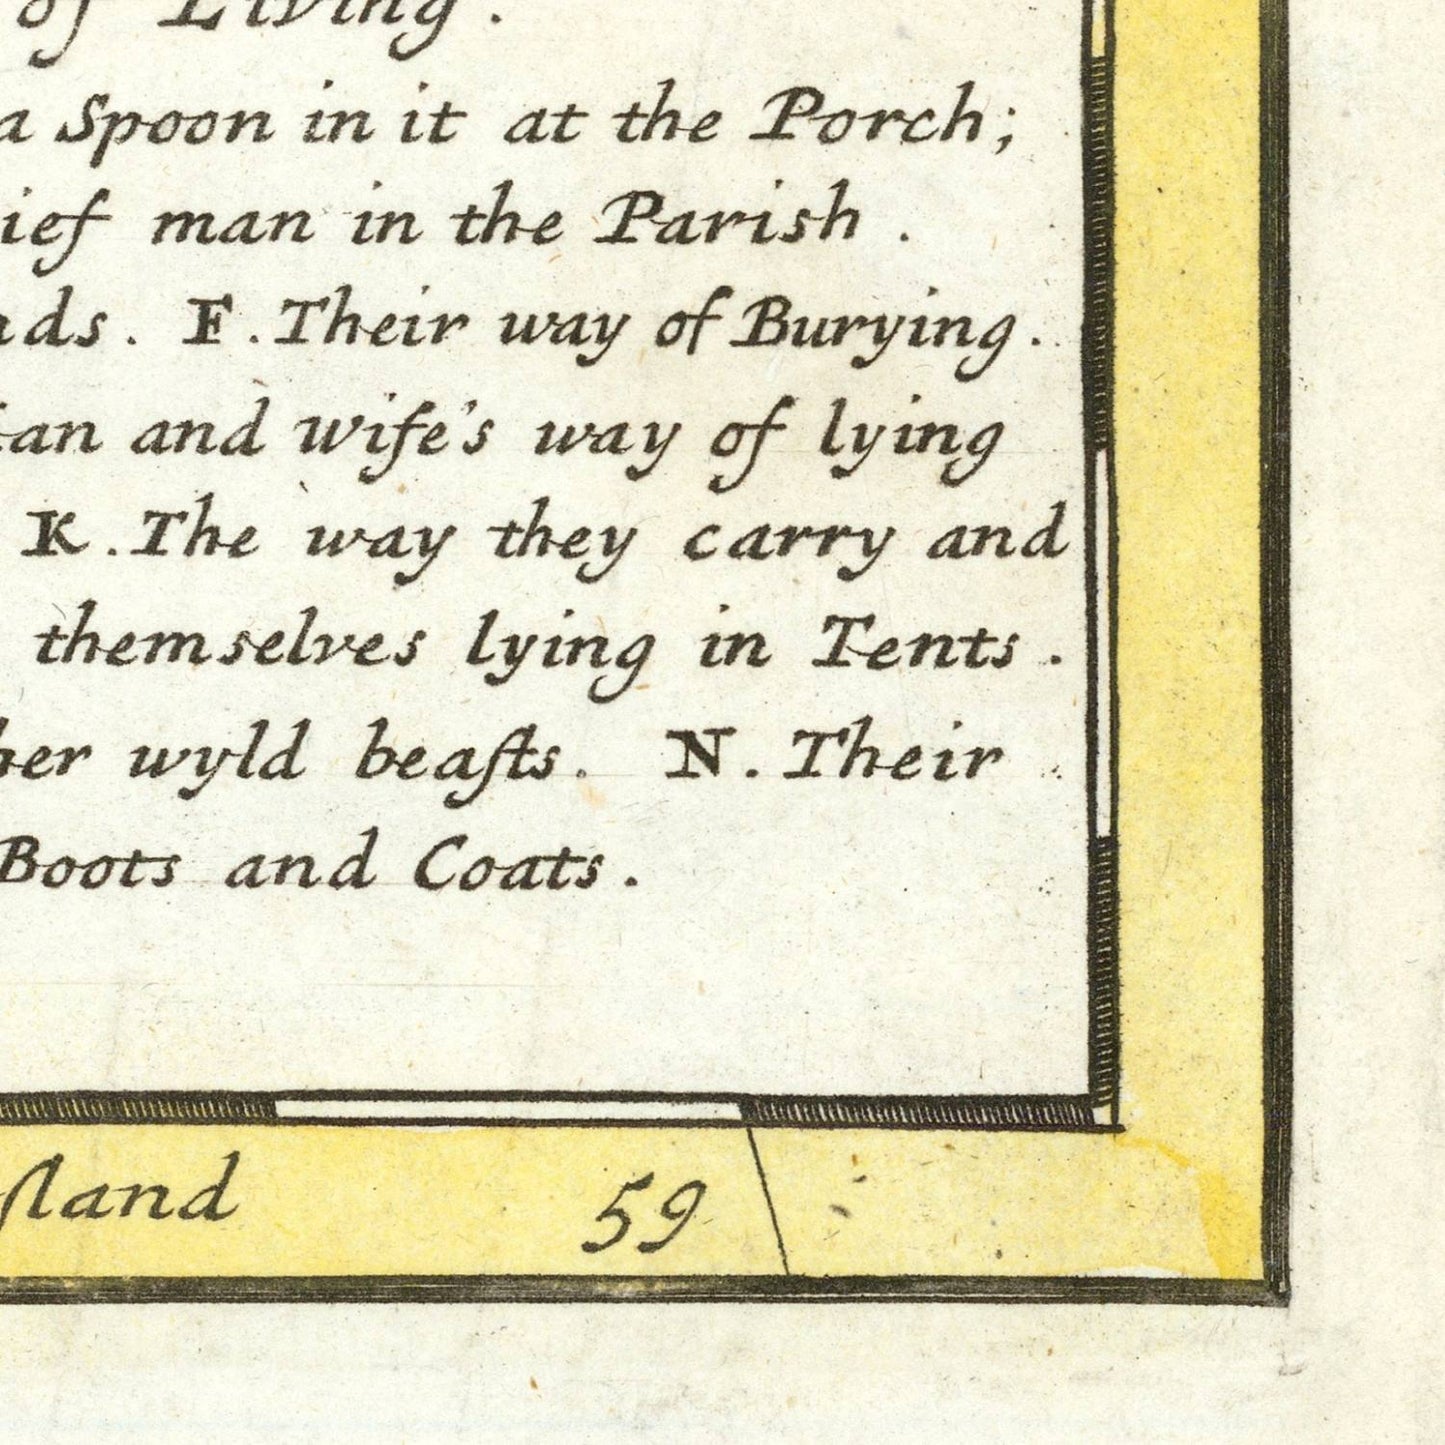 of Living .
a Spoon in it at the Porch;
ief man in the Parish .
ds . F . Their way of Burying .
an and wife's way of lying
K . The way they carry and
themselves lying in Tents .
her wyld beaſts . N . Their
Boots and Coats .
ſland 59